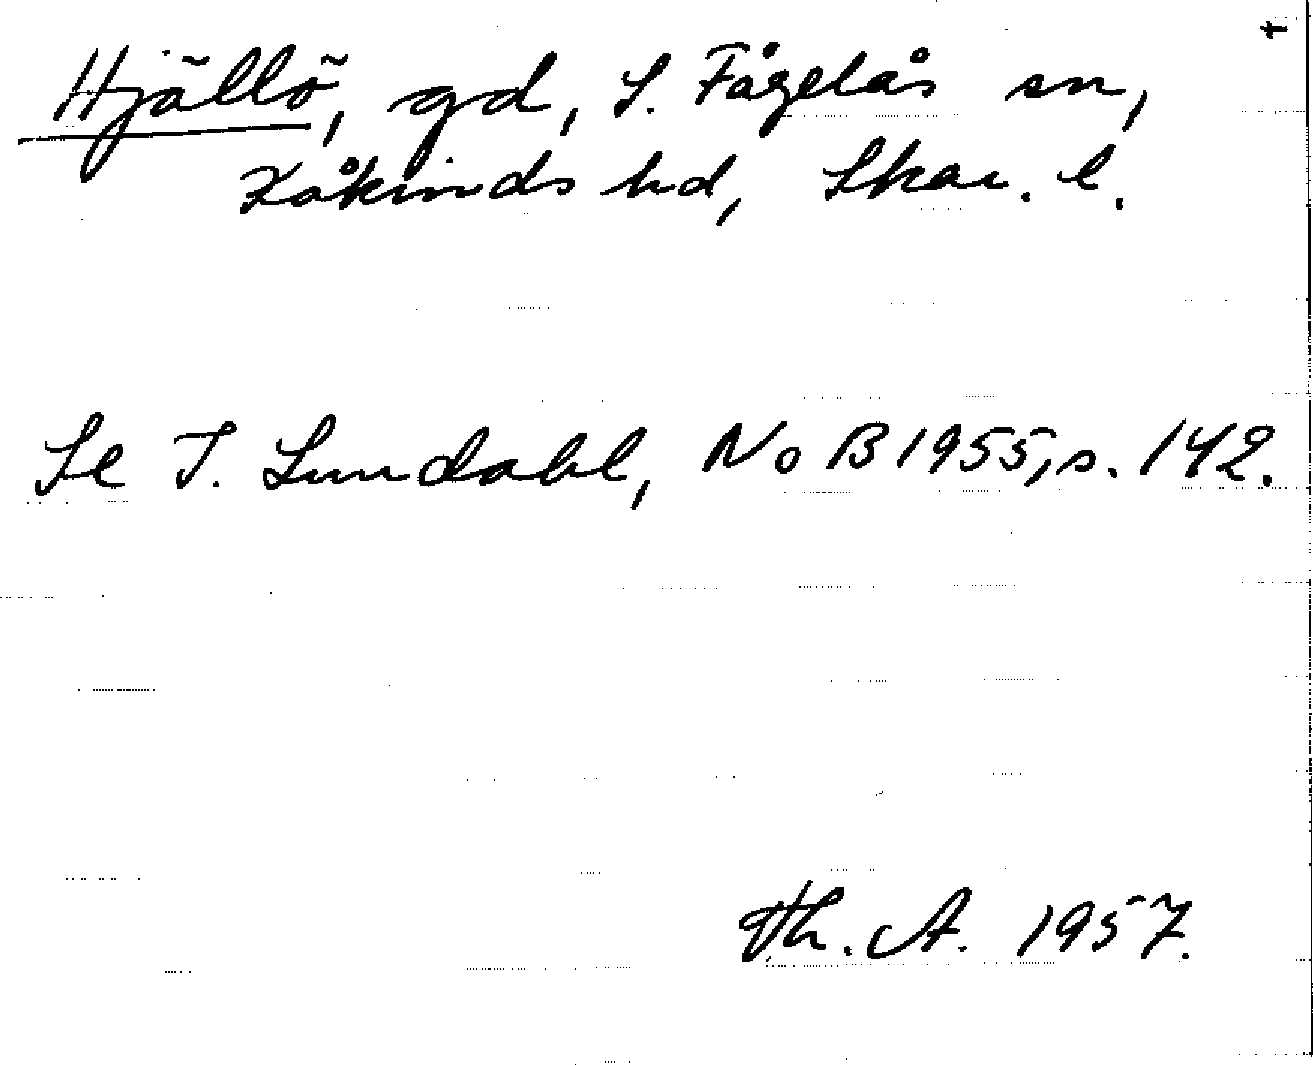 Hjällö, gd, S. Fågelås sn,
Kåkinds hd, Skar. l.
Se I. Lundahl, NoB 1955, s. 142.
Th. A. 1957.